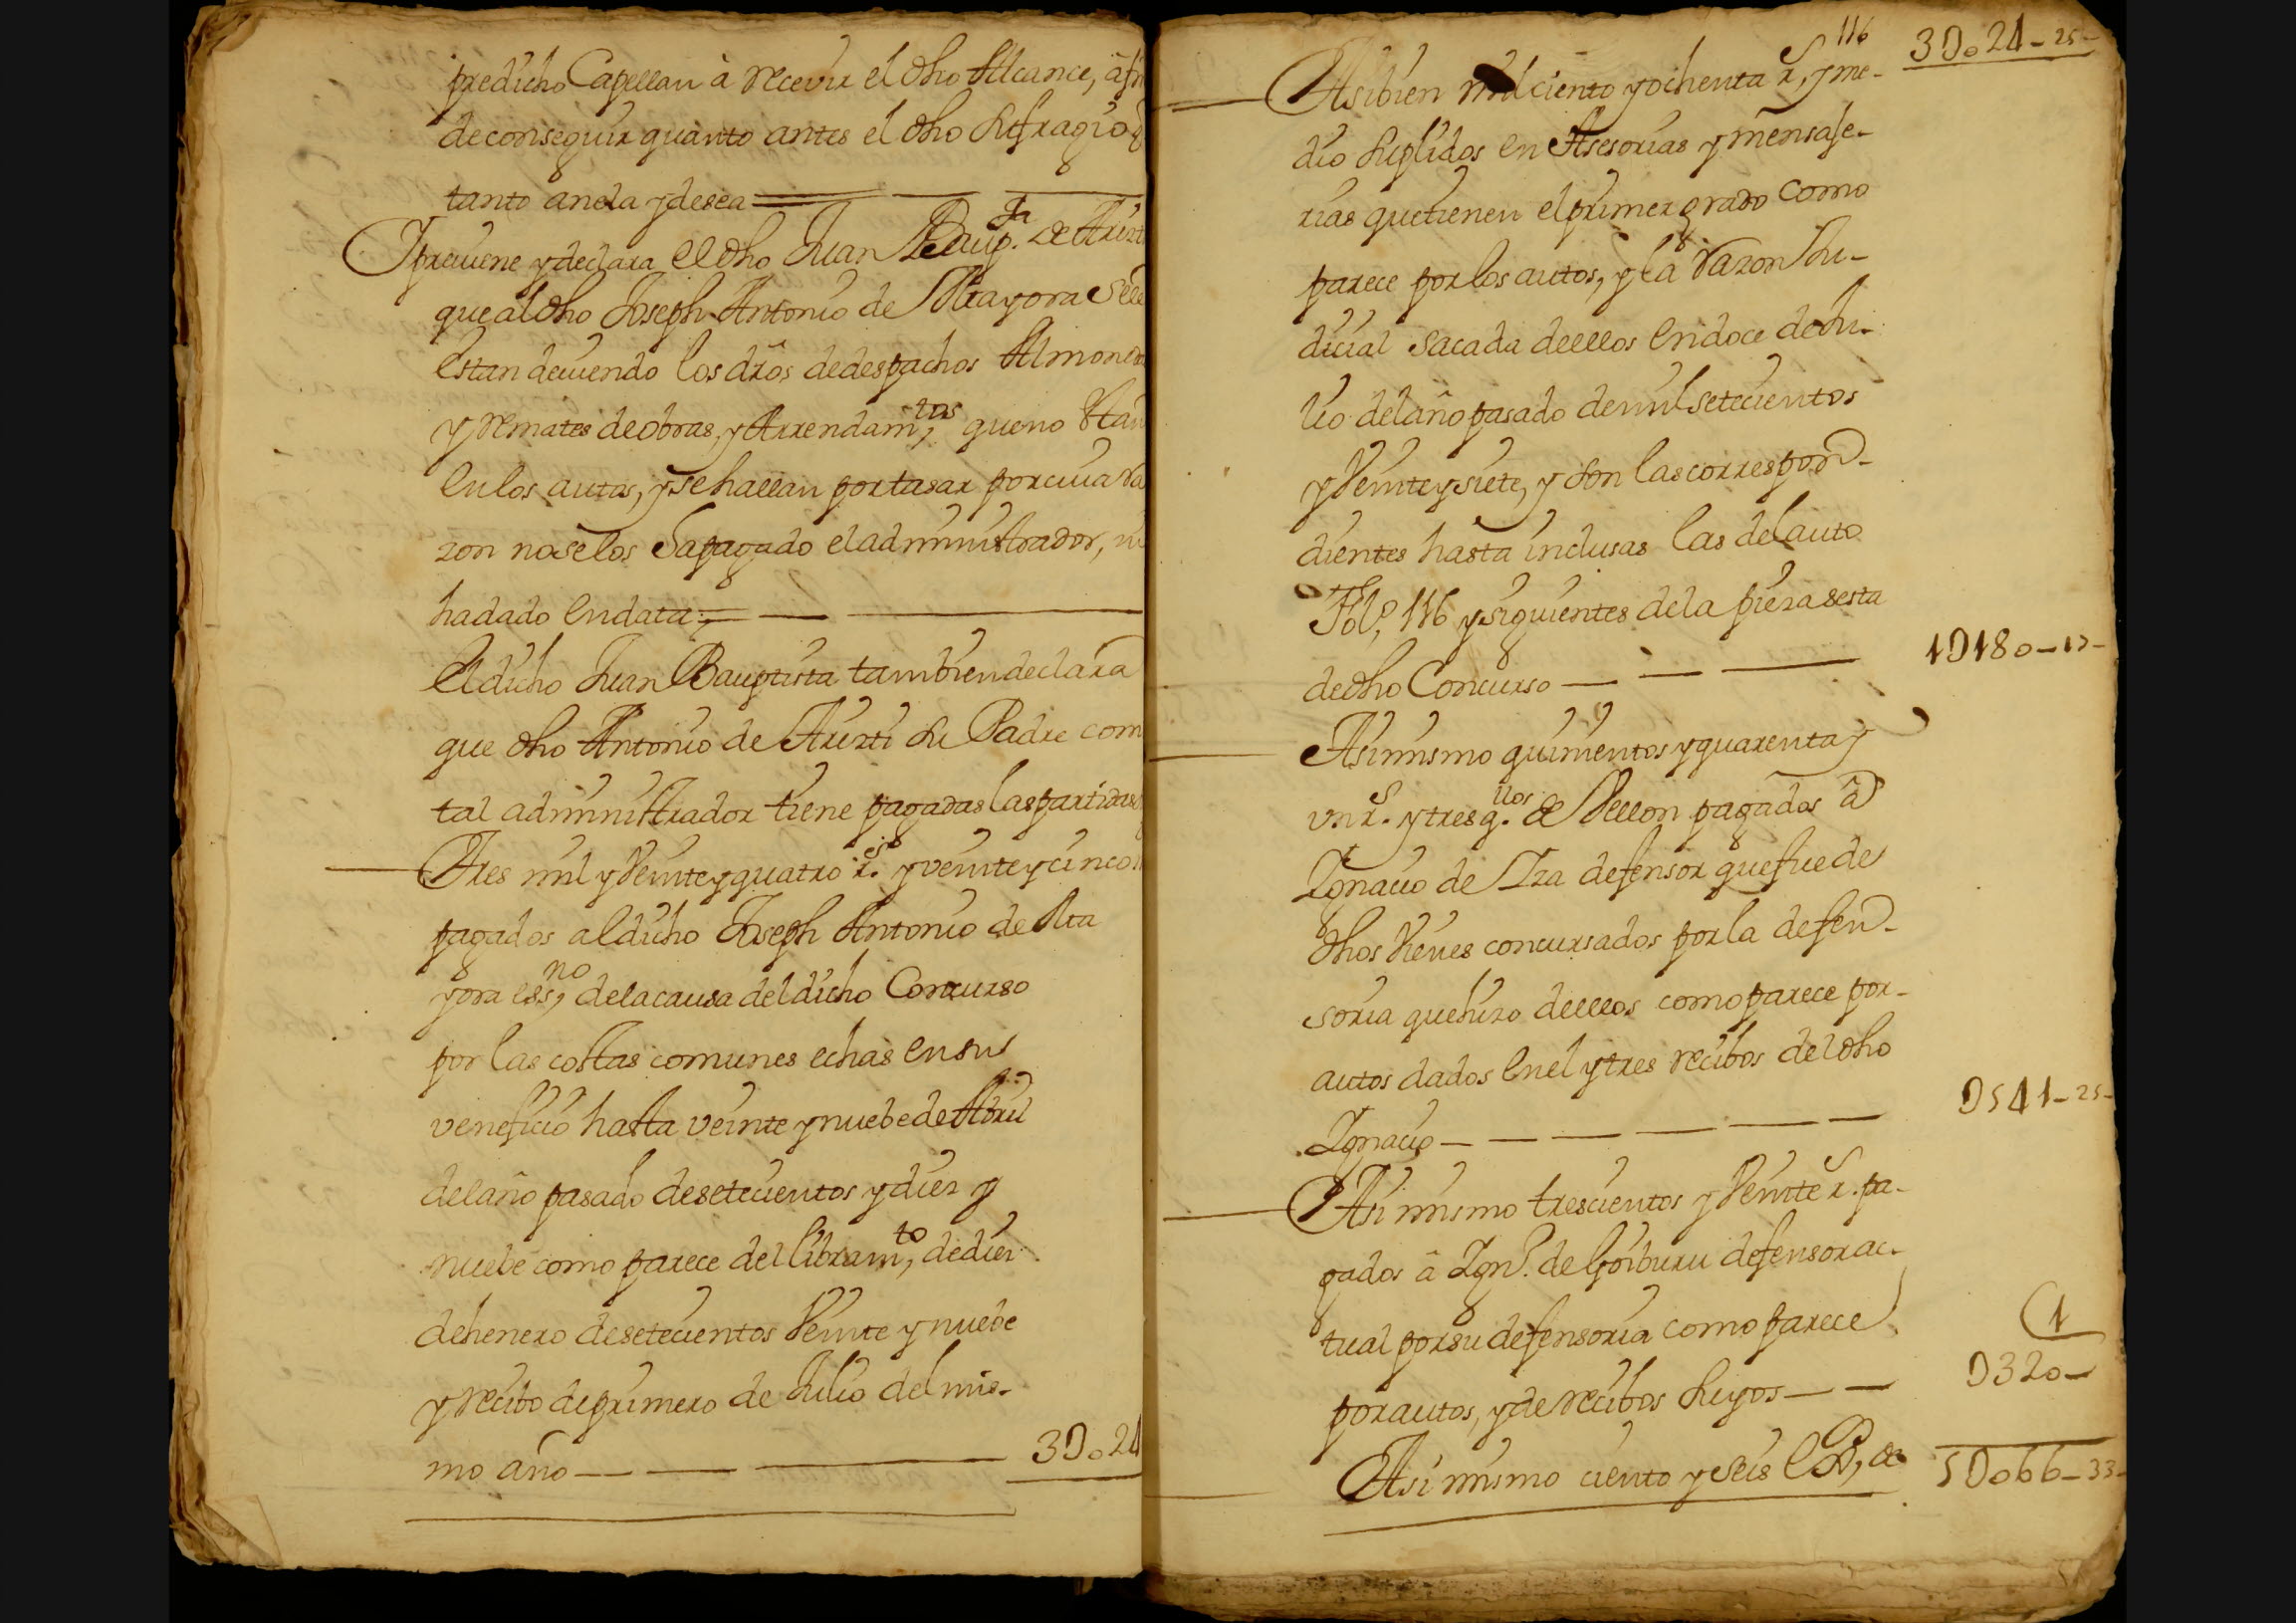 predicho Capellan à recevir el dho Alcance, â fin
de conseguir quanto antes el dho sufragio q
tanto anela y desea
Ypreviene y declara el dho Juan Baup.ta de Arizti
que al dho Joseph Antonio de Atayora se le
estan deviendo los drôs de despachos Almoned
y remates de obras, y Arrendam,tos que no stan
en los autos, y se hallan por tasar por cuia ra
zon no se los Japagado el administrador, ni
ha dado en data
El dicho Juan Bauptista tambien declara
que dho Antonio de Arizti su Padre com
tal administrador tiene pagadas las partidas
Tres mil y Veinte y quatro r.s y veinte y cinco
pagados al dicho Joseph Antonio de Ata
yora ess,no de la causa del dicho Concurso
por las costas comunes echas en sus
veneficio hasta veinte y nuebe de Abril
del año pasado de setecientos y diez y
nuebe como parece del libram,to de diez
de henero de setecientos Veinte y nuebe
y recibo de primero de Julio del mis-
mo año 3D.24
116
3D.24-25-
Asi bien mil ciento y ochenta r,s y me-
dio suplidos en Asesorias y mensaje-
rias que tienen el primer grado como
parece por los autos, y la razon Ju-
dicial sacada de ellos en doce de Ju-
lio del año pasado de mil setecientos
y Veinte y siete, y son las correspon-
dientes hasta inclusas las del auto
Fol,o 116 y siguientes de la pieza sesta
de dho Concurso 1D180-17-
Asimismo quinientos y quarenta y
un r.s y tres q.llos de Vellon pagados â
Ignacio de Iza defensor que fue de
dhos Vienes concursados por la defen-
soria que hizo de ellos como parece por-
autos dados en el y tres recibos del dho
Ignacio D541-25-
Asi mismo trescientos y Veinte r.s pa-
gados â Ign.o de Goiburu defensor ac-
tual por su defensoria como parece
por autos, y de recibos suyos D320-
1
Asi mismo ciento y seis r,s de 5D066-33-